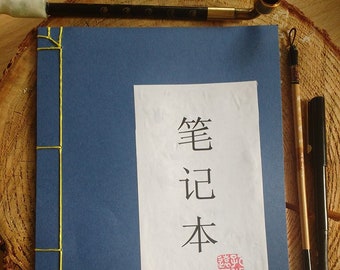 笔记本